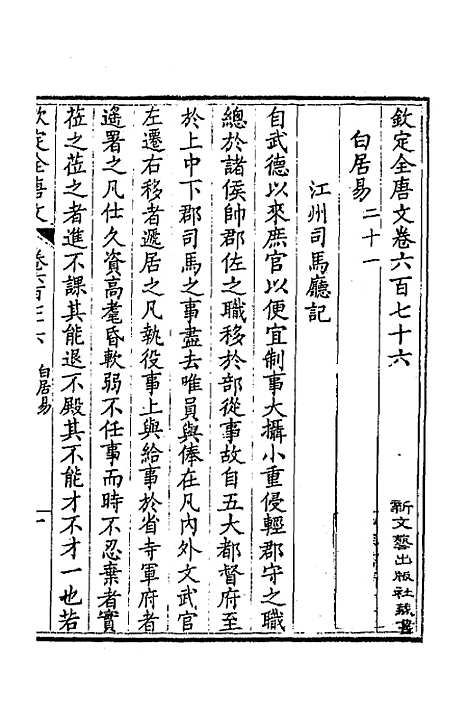 欽定全唐文卷六百七十六
白居易 二十一
江州司馬廳記
自武德以來庶官以便宜制事大攝小重侵輕郡守之職
總於諸侯帥郡佐之職移於部從事故自五大都督府至
於上中下郡司馬之事盡去唯員與俸在凡內外文武官
左遷右移者遞居之凡執役事上與給事於省寺軍府者
遙署之凡仕久資高耄昏軟弱不任事而時不忍棄者實
莅之莅之者進不課其能退不殿其不能才不才一也若
欽定全唐文 卷六百七十六 白居易 一
新文藝出版社藏書